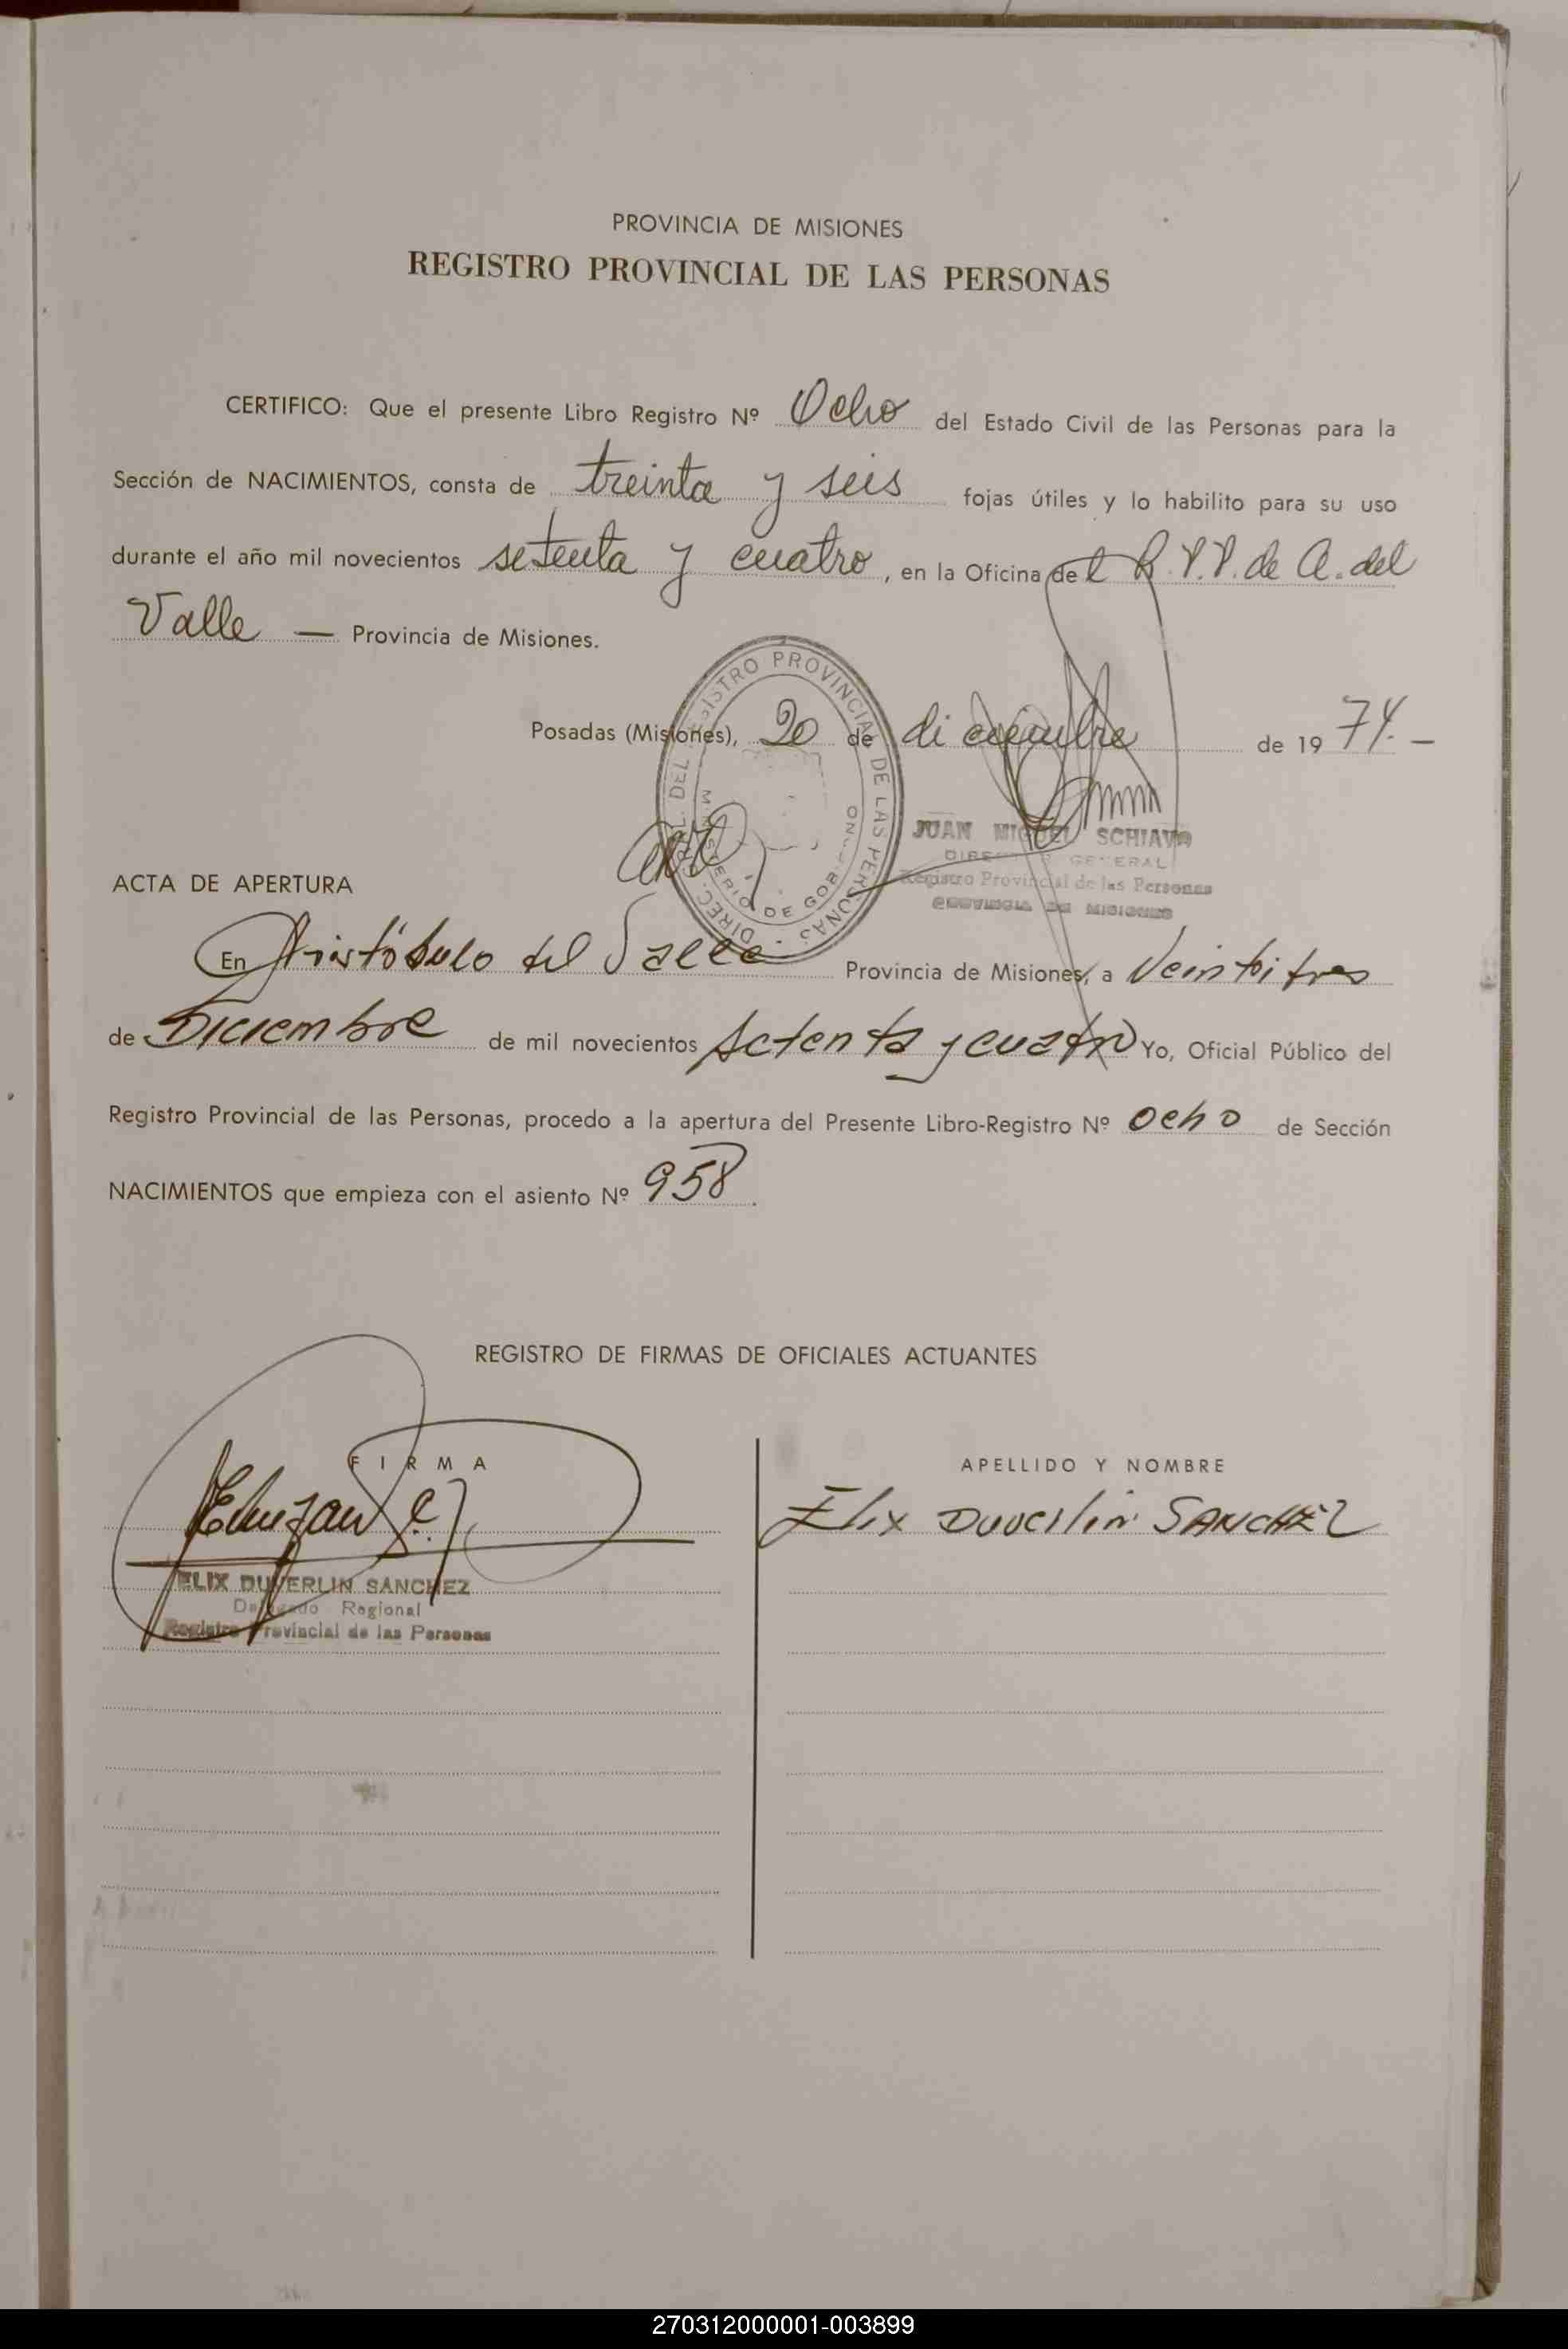 PROVINCIA DE MISIONES
REGISTRO PROVINCIAL DE LAS PERSONAS
CERTIFICO: Que el presente Libro Registro Nº Ocho del Estado Civil de las Personas para la
Sección de NACIMIENTOS, consta de treinta y seis fojas útiles y lo habilito para su uso
durante el año mil novecientos setenta y cuatro, en la Oficina del R.P.P. de A. del
Valle — Provincia de Misiones.
Posadas (Misiones), 20 de diciembre de 1974.-
DIREC. GRAL. DEL REGISTRO PROVINCIAL DE LAS PERSONAS
MINISTERIO DE GOBIERNO
JUAN MIGUEL SCHIAVO
DIRECTOR GENERAL
Registro Provincial de las Personas
PROVINCIA DE MISIONES
ACTA DE APERTURA
En Aristóbulo del Valle Provincia de Misiones, a Veintitres
de Diciembre de mil novecientos setenta y cuatro Yo, Oficial Público del
Registro Provincial de las Personas, procedo a la apertura del Presente Libro-Registro Nº ocho de Sección
NACIMIENTOS que empieza con el asiento Nº 958.
REGISTRO DE FIRMAS DE OFICIALES ACTUANTES
FIRMA
APELLIDO Y NOMBRE
Elix Duverlin SANCHEZ
ELIX DUVERLIN SANCHEZ
Delegado Regional
Registro Provincial de las Personas
270312000001-003899